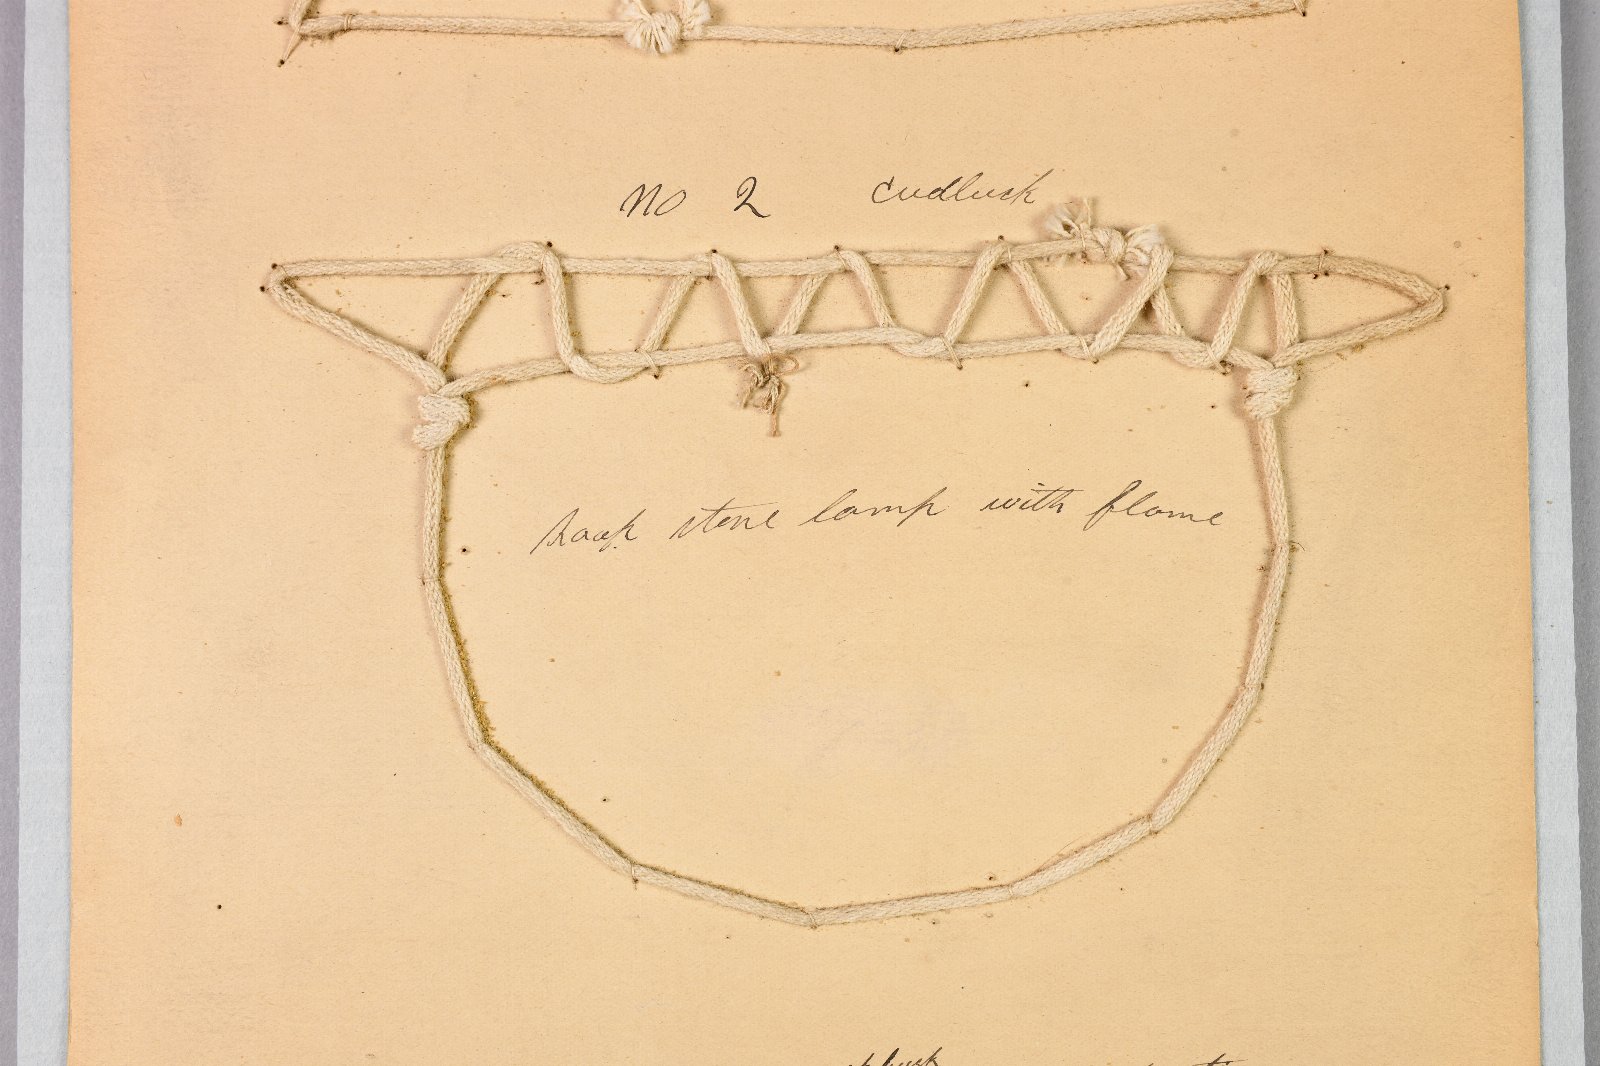 No 2 cudluck
soap stone lamp with flame